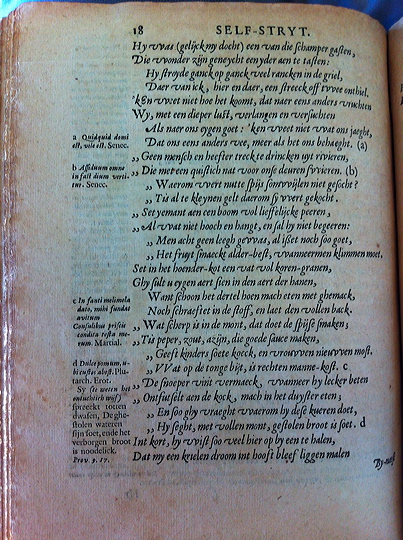 18 SELF-STRYT.
Hy vvas (gelijck my docht) een van die schamper gasten,
Die vvonder zijn geneycht eenyder aen te tasten:
Hy stroyde ganck op ganck veel rancken in de griel,
Daer van ick, hier en daer, een streeck oft tvvee onthiel.
'k en vveet niet hoe het koomt, dat naer eens anders vruchten
Wy, met een dieper lust, verlangen en versuchten
Als naer ons eygen goet: 'ken vveet niet vvat ons jaeght,
Dat ons eens anders vvee, meer als het ons behaeght. (a)
„ Geen mensch en heefter treck te drincken uyt rivieren,
„ Die met een quistich nat voor onse deuren svvieren. (b)
„ Waerom vvert nutte spijs somvvijlen niet gesocht?
„ Tis al te kleynen gelt daerom sy vvert gekocht.
„ Set yemant aen een boom vol lieffelijcke peeren,
„ Al vvat niet hooch en hangt, en sal hy niet begeeren:
„ Men acht geen leegh gevvas, al ißet noch soo goet,
„ Het fruyt smaeckt alder-best, vvanneermen klimmen moet.
Set in het hoender-kot een vat vol koren-granen,
Ghy sult u eygen aert sien in den aert der hanen,
Want schoon het dertel hoen mach eten met ghemack,
Noch schraeft et in de stoff, en laet den vollen back.
„ Wat scherp is in de mont, dat doet de spijse smaken;
„ Tis peper, zout, azijn, die goede sauce maken,
„ Geeft kinders soete koeck, en vrouvven nieuvven most.
„ VVat op de tonge bijt, is rechten manne-kost. c
„ De snoeper vint vermaeck, vvanneer hy lecker beten
„ Ontfutselt aen de kock, mach in het duyster eten;
„ En soo ghy vraeght vvaerom hy dese kueren doet,
„ Hy seght, met vollen mont, gestolen broot is soet. d
Int kort, hy vvist soo veel hier op by een te halen,
Dat my een krielen droom int hooft bleef liggen malen
a Quidquid domi
est, vile est. Senec.
b Assiduum omne
in fastidium verti-
tur. Senec.
c Infanti melimela
dato, mihi fundat
avitum
Consulibus priscis
condita testa me-
rum. Martial.
d Dulce pomum,
Plu-
tarch. Erot.
Sy (te weten het
onkuische wijf)
spreeckt totten
dwasen, De ghe-
stolen wateren
zijn soet, ende het
verborgen broot
is noodelick.
Prov. 9. 17.